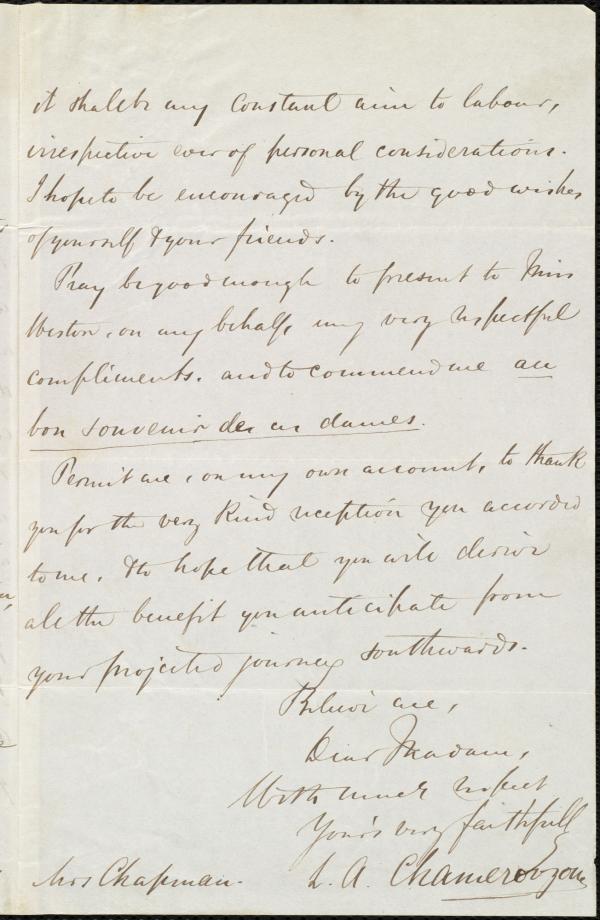 it shall be my constant aim to labour,
irrespective ever of personal considerations.
I hope to be encouraged by the good wishes
of yourself & your friends.
Pray be good enough to present to Miss
Weston, on my behalf, my very respectful
compliments. and to commend me au
bon souvenir de ces dames.
Permit me, on my own account, to thank
you for the very kind reception you accorded
to me. & to hope that you will derive
all the benefit you anticipate from
your projected journey southwards.
Believe me,
Dear Madam,
With much respect
Yours very faithfully
Mrs Chapman. L. A. Chamerovzow